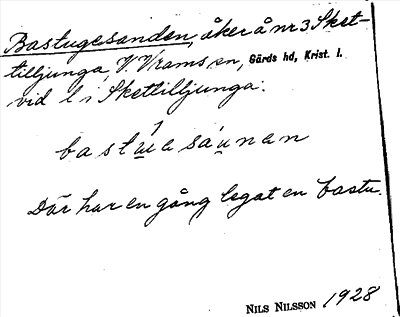 Bastugesanden, åker å nr 3 Sket-
tilljunga, V. Vrams sn, Gärds hd, Krist. l.
vid l i Skettilljunga:
bastu̲a sáu̲nan
Där har en gång legat en bastu.
NILS NILSSON 1928